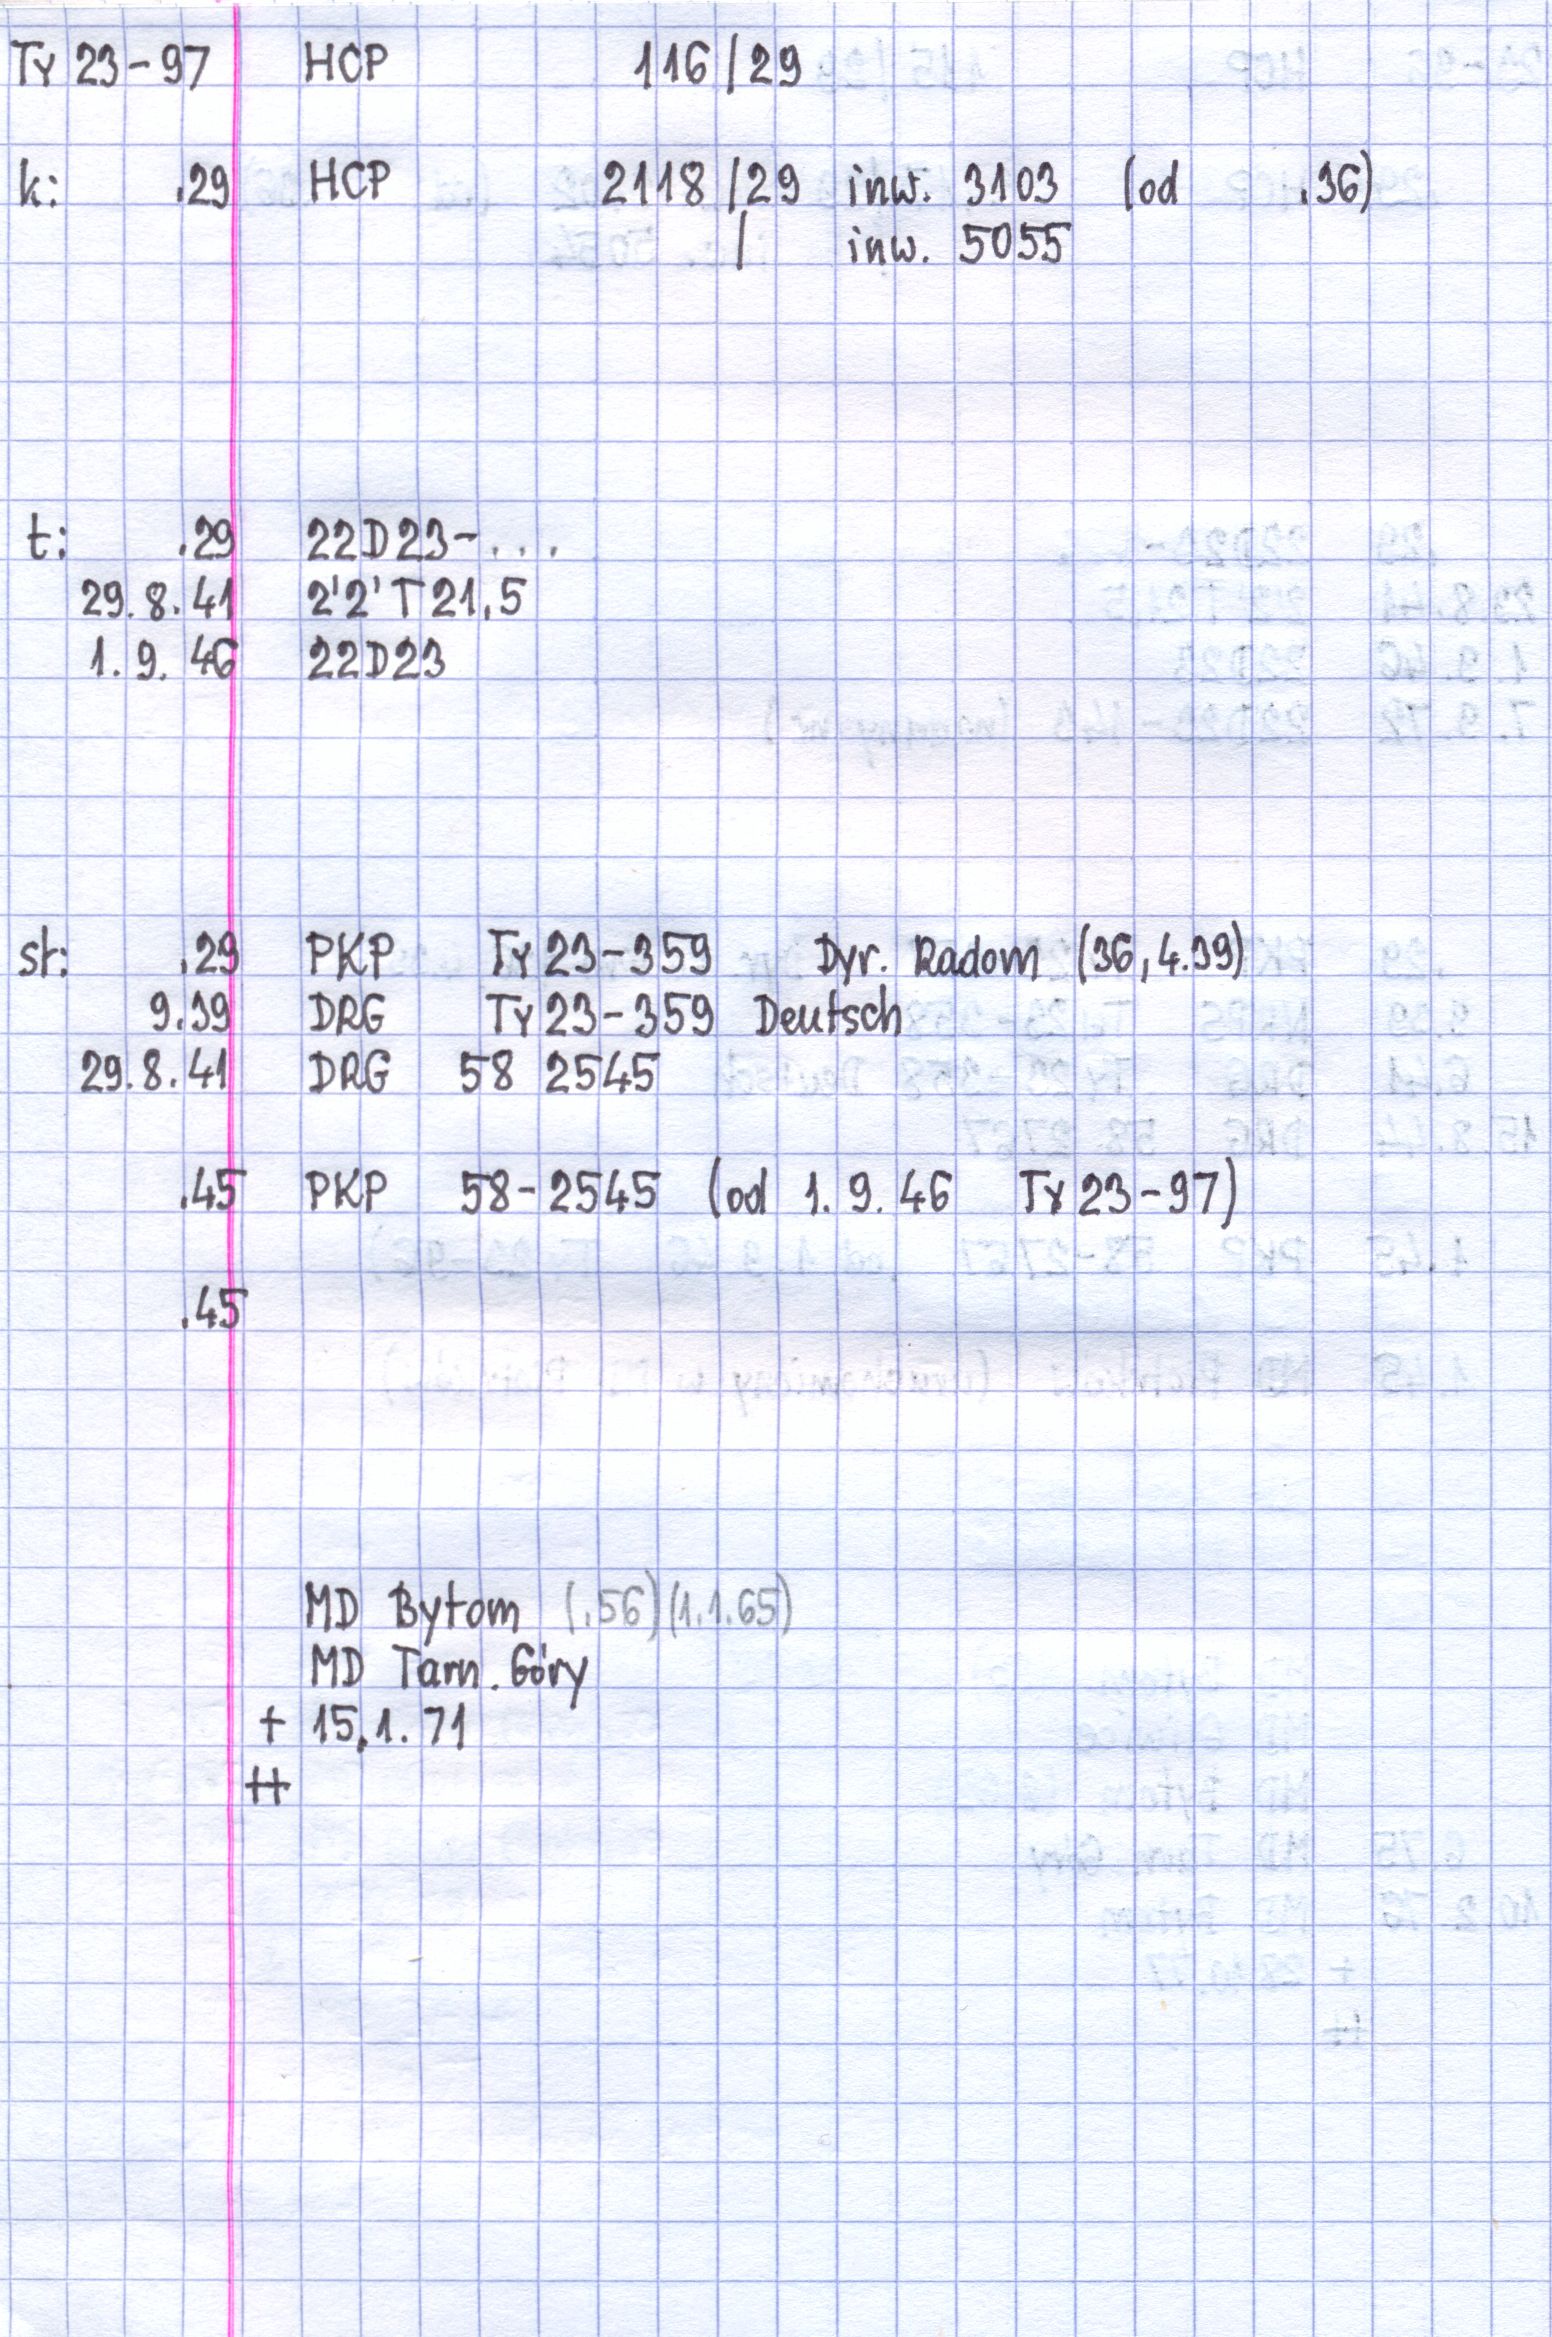 Ty 23-97 HCP 116/29
k: .29 HCP 2118/29 inw. 3103 (od .36)
/ inw. 5055
t: .29 22D23-...
29.8.41 2'2'T21,5
1.9.46 22D23
st: .29 PKP Ty23-359 Dyr. Radom (36, 4.39)
9.39 DRG Ty23-359 Deutsch
29.8.41 DRG 58 2545
.45 PKP 58-2545 (od 1.9.46 Ty23-97)
.45
MD Bytom (.56)(1.1.65)
MD Tarn. Góry
+ 15.1.71
++